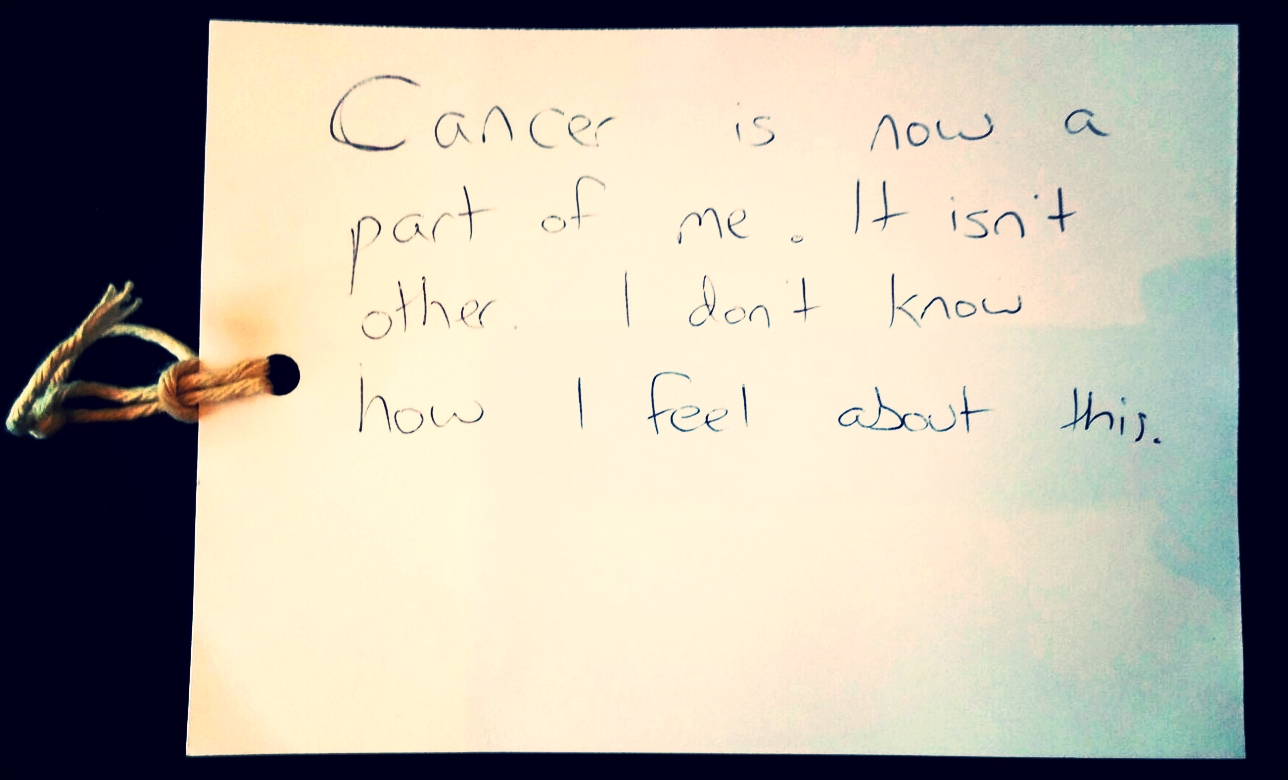 Cancer is now a
part of me. It isn't
other. I don't know
how I feel about this.